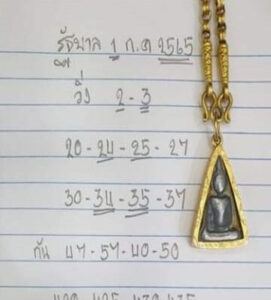 รัฐบาล 1 ก.ค 2565
วิ่ง 2-3
20-24-25-27
30-34-35-37
กัน 47-57-40-50